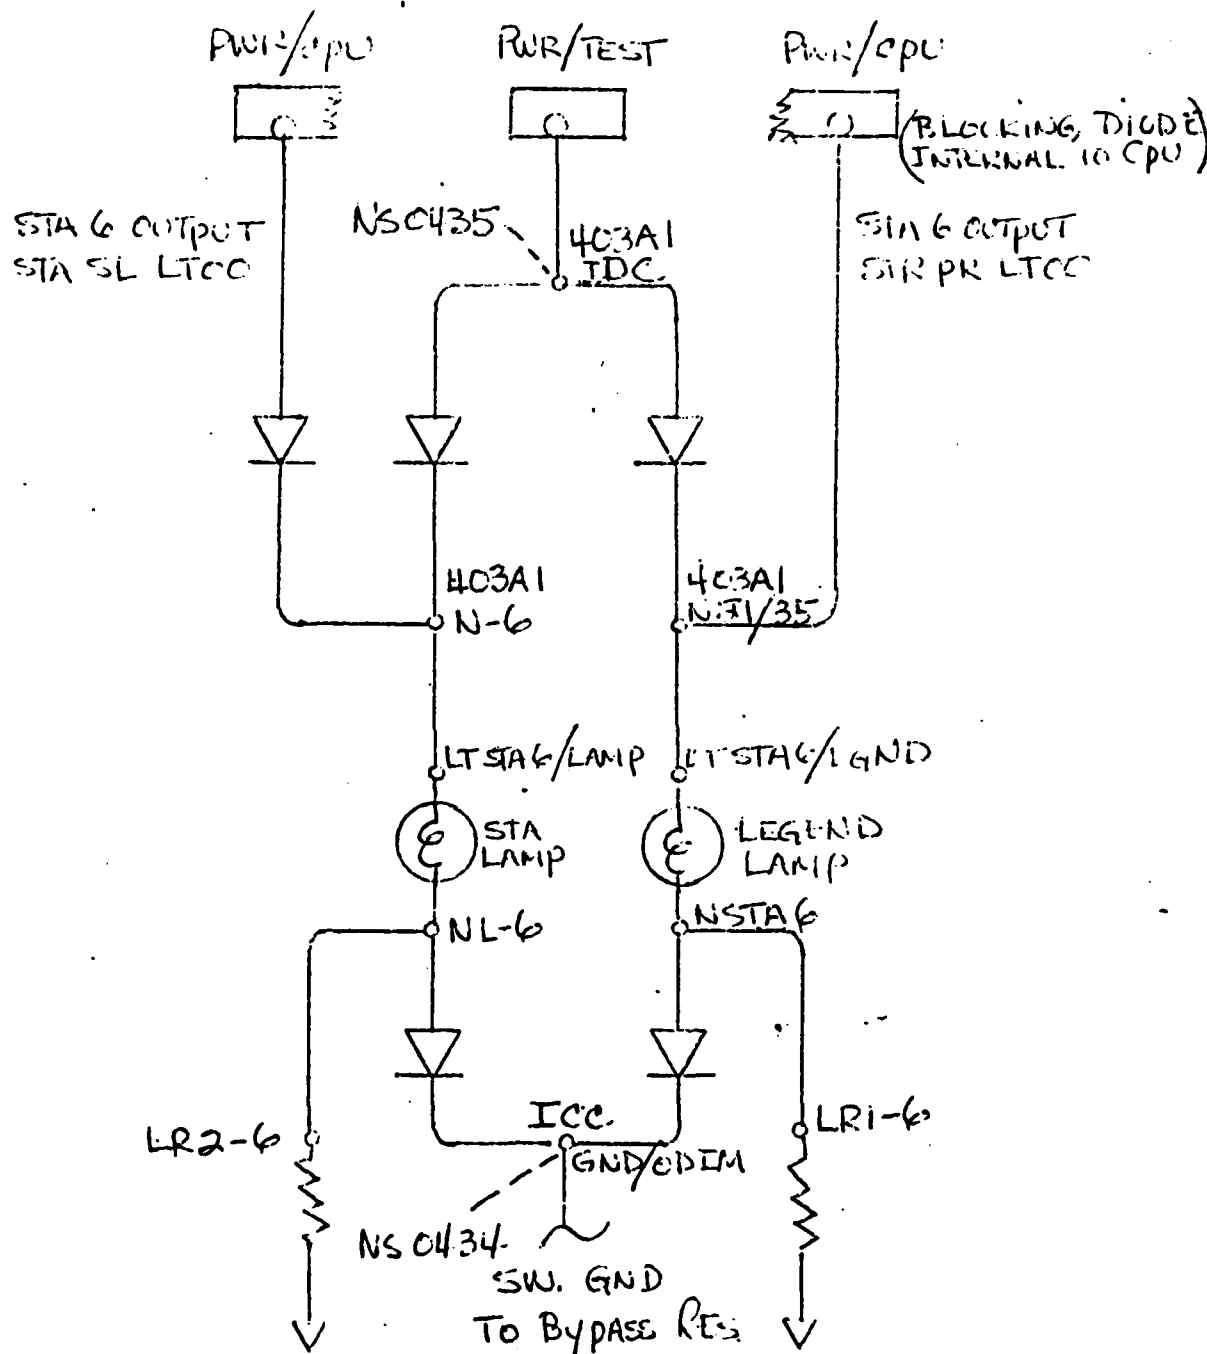 PWR/CPU
PWR/TEST
PWR/CPU
(BLOCKING DIODE
INTERNAL TO CPU)
STA 6 OUTPUT
STA SL LTCC
NS0435
403A1
TDC.
STA 6 OUTPUT
STA PR LTCC
403A1
N-6
403A1
/35
LT STA6/LAMP
LT STA6/LGND
STA
LAMP
LEGEND
LAMP
NL-6
NSTA6
ICC.
LR1-6
LR2-6
GND/ODIM
NS0434
SW. GND
TO BYPASS RES.